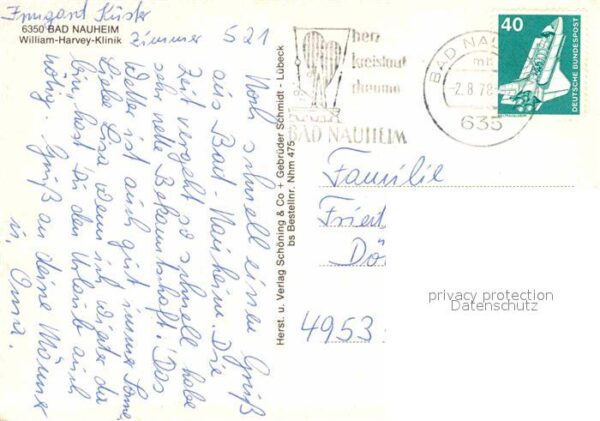 Irmgard Küster
6350 BAD NAUHEIM
William-Harvey-Klinik
Zimmer 521
Noch schnell einen Gruß
aus Bad-Nauheim. Die
Zeit vergeht so schnell habe
sehr nette Bekanntschaft! Das
Wetter ist auch gut immer Sonne,
Liebe Lisa wenn ich wieder da
bin, hast Du den Urlaub auch
nötig. Gruß an deine Männer
u. Oma.
Herst. u. Verlag Schöning & Co + Gebrüder Schmidt - Lübeck
bs Bestellnr. Nhm 475
herz
kreislauf
rheuma
BAD NAUHEIM
BAD NAU
-2.8.78
635
40
DEUTSCHE BUNDESPOST
Familie
Fried
Dö
4953
privacy protection
Datenschutz